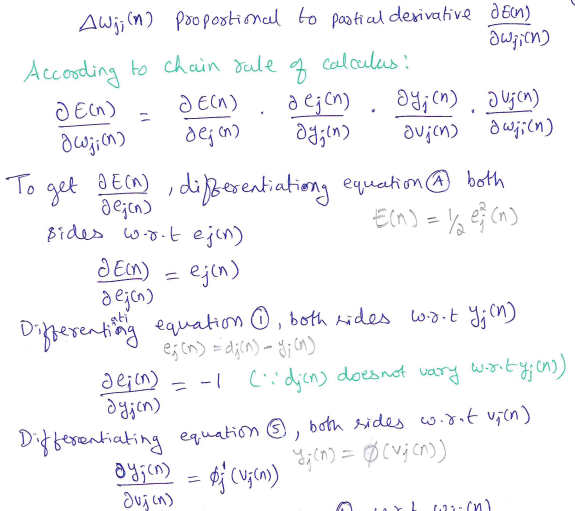 Δwji(n) proportional to partial derivative ∂E(n)/∂wji(n)
According to chain rule of calculus:
∂E(n)/∂wji(n) = ∂E(n)/∂ej(n) . ∂ej(n)/∂yj(n) . ∂yj(n)/∂vj(n) . ∂vj(n)/∂wji(n)
To get ∂E(n)/∂ej(n), differentiationg equation Ⓐ both
sides w.r.t ej(n)
E(n) = 1/2 ej²(n)
∂E(n)/∂ej(n) = ej(n)
Differentiating equation ①, both sides w.r.t yj(n)
ej(n) = dj(n) - yj(n)
∂ej(n)/∂yj(n) = -1 (∵ dj(n) doesnot vary w.r.t yj(n))
Differentiating equation ⑤, both sides w.r.t vj(n)
yj(n) = φ(vj(n))
∂yj(n)/∂vj(n) = φj'(vj(n))